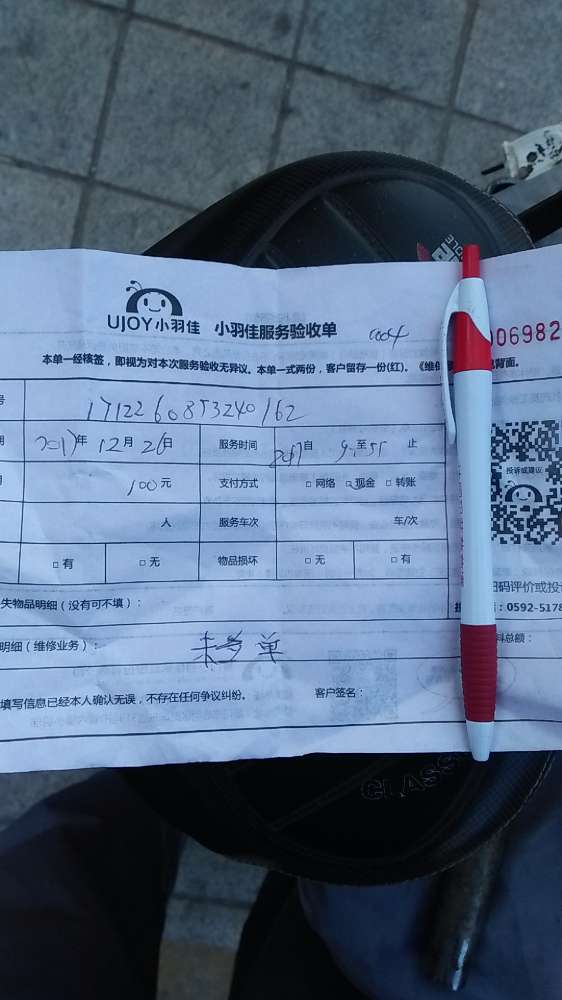 UJOY小羽佳 小羽佳服务验收单 0064
006982
本单一经核签，即视为对本次服务验收无异议。本单一式两份，客户留存一份(红)。《维 背面。
号 1712260853240162
期 2017年12月26日 服务时间 自 至 止
100元 支付方式 □网络 □现金 □转账
人 服务车次 车/次
□有 □无 物品损坏 □无 □有
投诉或建议
扫码评价或投
0592-5178
失物品明细（没有可不填）：
明细（维修业务）： 料总额：
未 单
填写信息已经本人确认无误，不存在任何争议纠纷。 客户签名：
CLASS